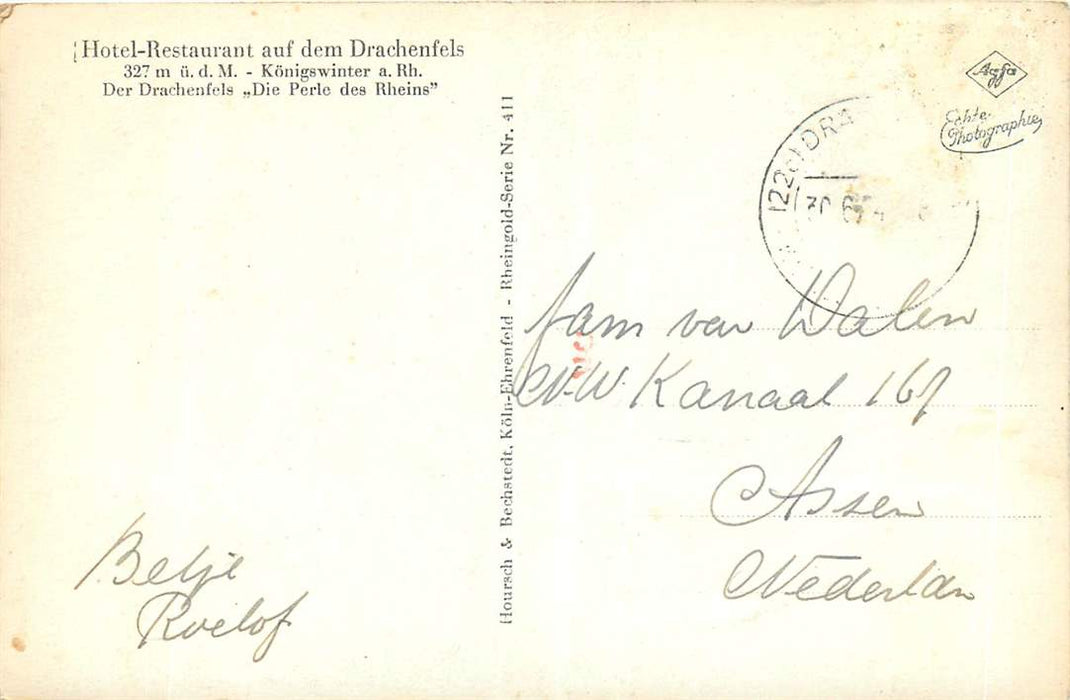 Hotel-Restaurant auf dem Drachenfels
327 m ü. d. M. - Königswinter a. Rh.
Der Drachenfels „Die Perle des Rheins”
Agfa
Echte
Photographie
(22c) DRA
30 6
Hoursch & Bechstedt, Köln-Ehrenfeld - Rheingold-Serie Nr. 411
fam van Dalen
N.W. Kanaal 167
Assen
Nederlan
Betje
Roelof